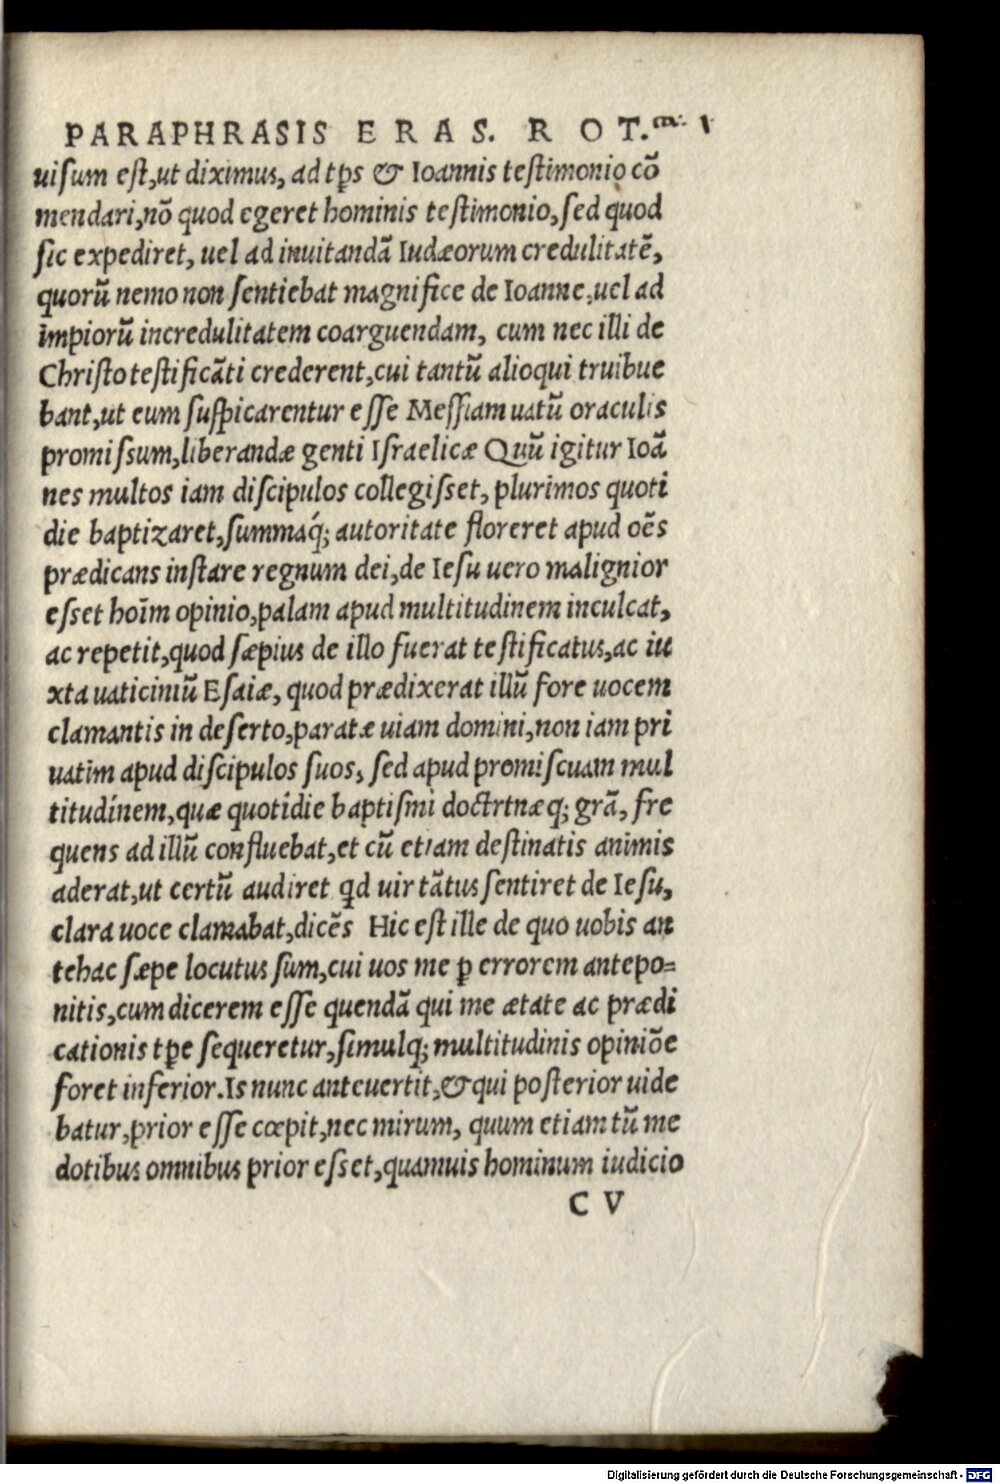 PARAPHRASIS ERAS. ROT.
uisum est,ut diximus, ad tp̃s & Ioannis testimonio cõ
mendari,nõ quod egeret hominis testimonio,sed quod
sic expediret, uel ad inuitandã Iudæorum credulitatẽ,
quorũ nemo non sentiebat magnifice de Ioanne,uel ad
impiorũ incredulitatem coarguendam, cum nec illi de
Christo testificãti crederent,cui tantũ alioqui truibue
bant,ut eum suspicarentur esse Messiam uatũ oraculis
promissum,liberandæ genti Israelicæ Quũ igitur Ioã
nes multos iam discipulos collegisset, plurimos quoti
die baptizaret,summaq́; autoritate floreret apud oẽs
prædicans instare regnum dei,de Iesu uero malignior
esset hoĩm opinio,palam apud multitudinem inculcat,
ac repetit,quod sæpius de illo fuerat testificatus,ac iu
xta uaticiniũ Esaiæ, quod prædixerat illũ fore uocem
clamantis in deserto,paratæ uiam domini,non iam pri
uatim apud discipulos suos, sed apud promiscuam mul
titudinem,quæ quotidie baptismi doctrtnæq; grã, fre
quens ad illũ confluebat,et cũ etiam destinatis animis
aderat,ut certũ audiret qd uir tãtus sentiret de Iesu,
clara uoce clamabat,dicẽs Hic est ille de quo uobis an
tehac sæpe locutus sum,cui uos me ꝑ errorem antepo=
nitis,cum dicerem esse quendã qui me ætate ac prædi
cationis tp̃e sequeretur,simulq; multitudinis opiniõe
foret inferior.Is nunc anteuertit,& qui posterior uide
batur,prior esse cœpit,nec mirum, quum etiam tũ me
dotibus omnibus prior esset,quamuis hominum iudicio
C V
Digitalisierung gefördert durch die Deutsche Forschungsgemeinschaft - DFG